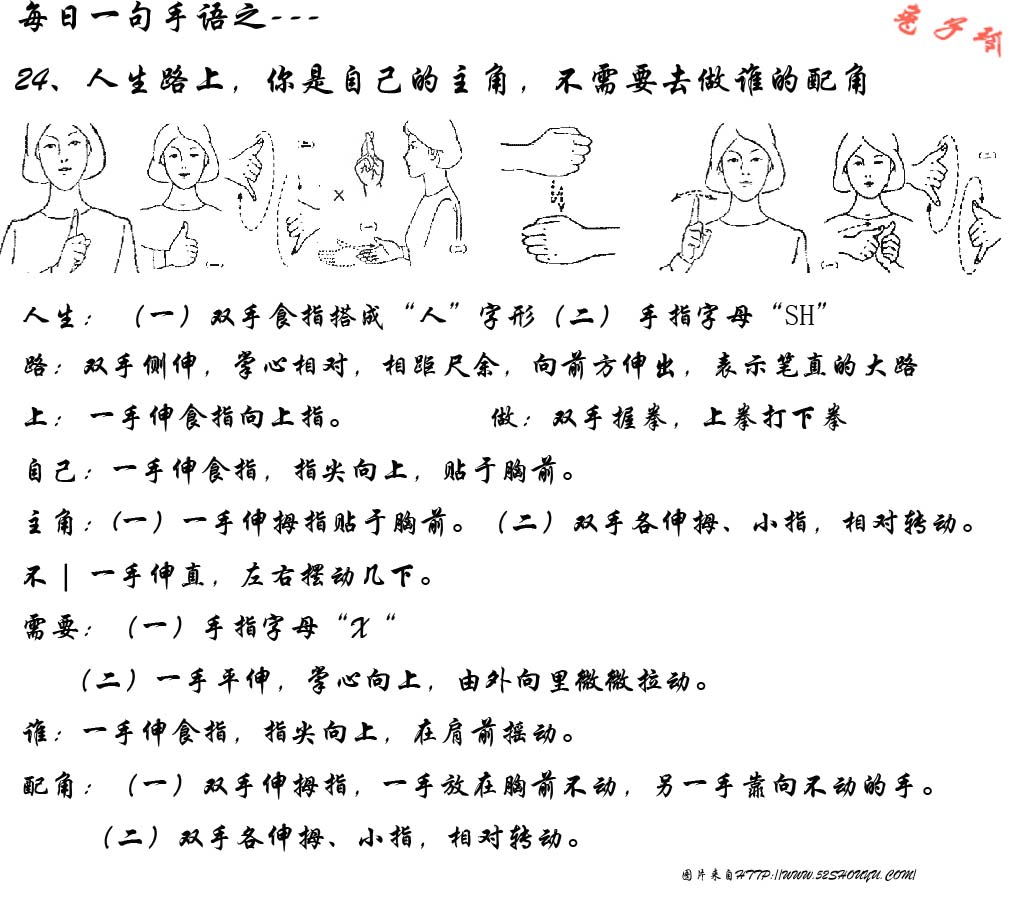 每日一句手语之---
24、人生路上，你是自己的主角，不需要去做谁的配角
(二)
(二)
X
(一)
(一)
(二)
(一)
人生：（一）双手食指搭成“人”字形（二） 手指字母“SH”
路：双手侧伸，掌心相对，相距尺余，向前方伸出，表示笔直的大路
上： 一手伸食指向上指。 做：双手握拳，上拳打下拳
自己：一手伸食指，指尖向上，贴于胸前。
主角：（一）一手伸拇指贴于胸前。（二）双手各伸拇、小指，相对转动。
不 | 一手伸直，左右摆动几下。
需要：（一）手指字母“X“
（二）一手平伸，掌心向上，由外向里微微拉动。
谁：一手伸食指，指尖向上，在肩前摇动。
配角：（一）双手伸拇指，一手放在胸前不动，另一手靠向不动的手。
（二）双手各伸拇、小指，相对转动。
图片来自HTTP://WWW.52SHOUYU.COM/